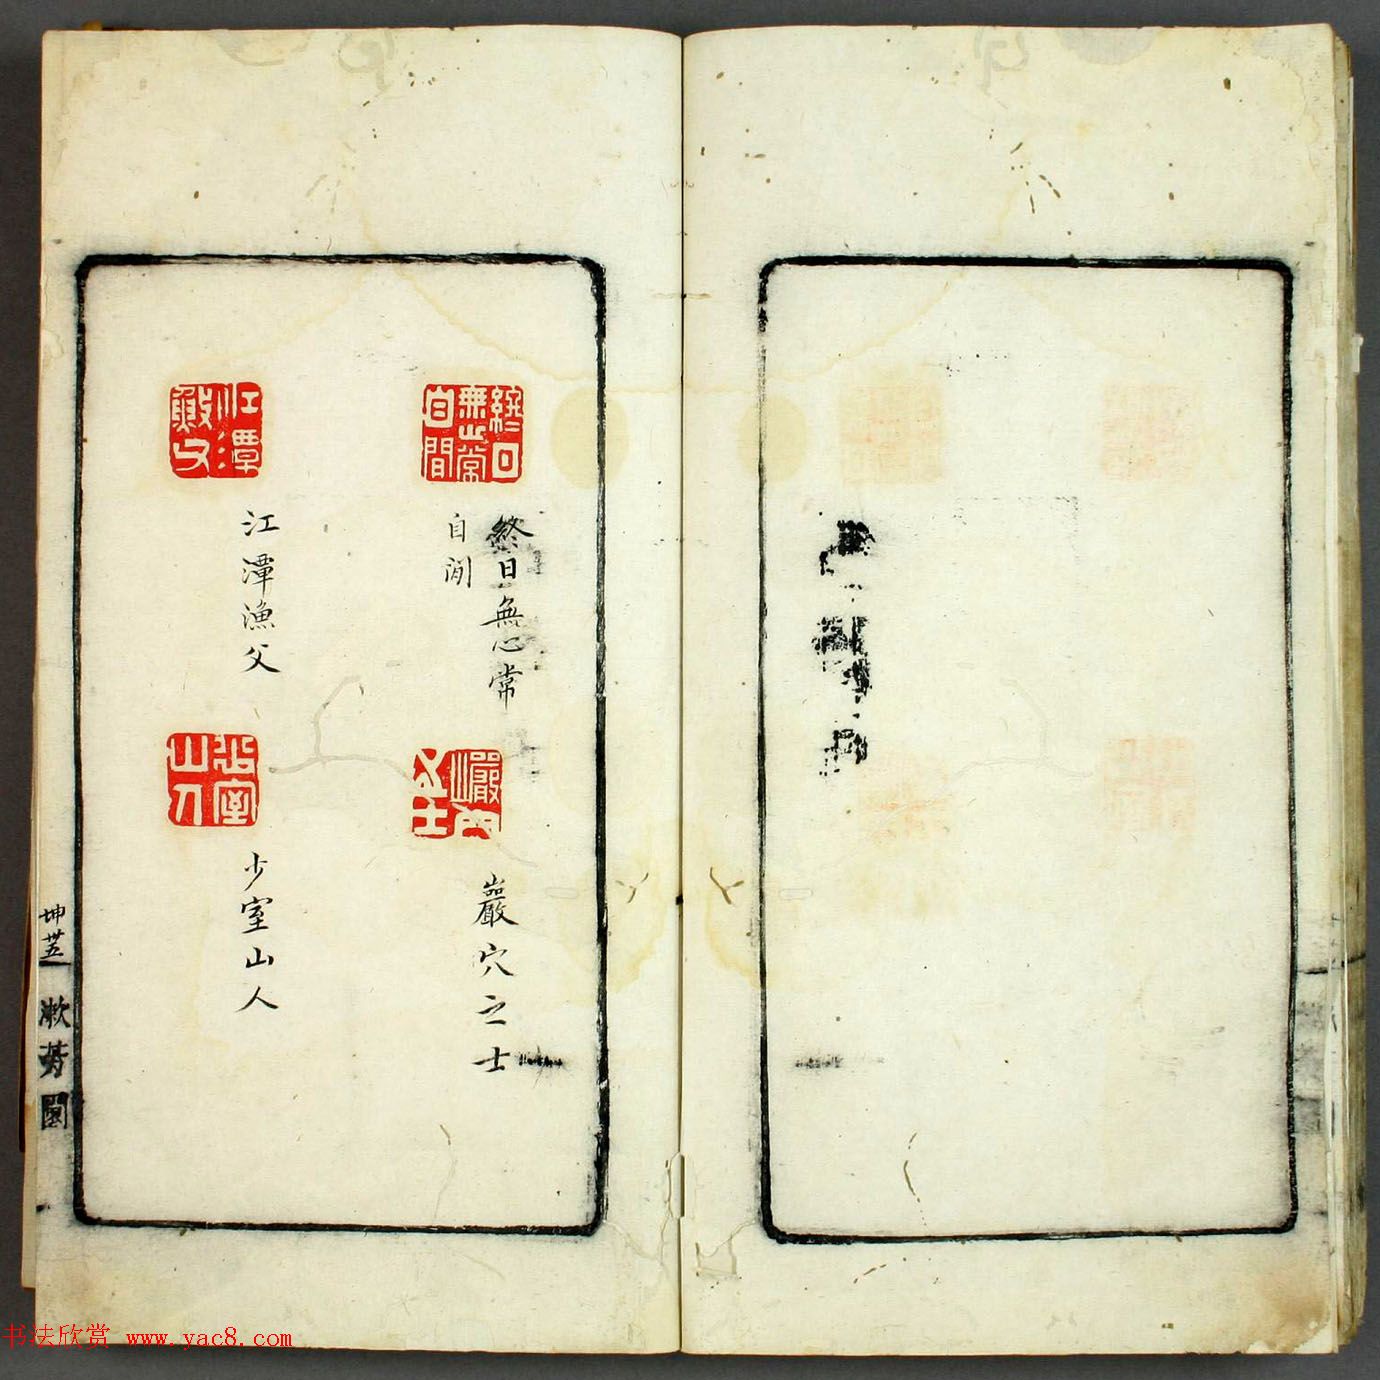 終日無心常
自閒
巖穴之士
江潭漁父
少室山人
終日無心常自閒
巖穴之士
江潭漁父
少室山人
漱芳閣
书法欣赏 www.yac8.com